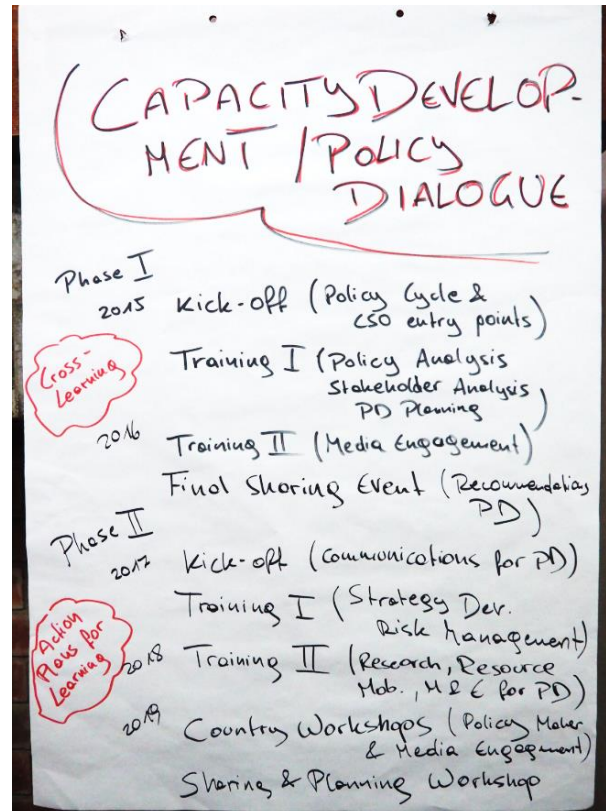 CAPACITY DEVELOP-
MENT / POLICY
DIALOGUE
Phase I
2015 Kick-off (Policy Cycle &
CSO entry points)
Cross-
Learning
Training I (Policy Analysis
Stakeholder Analysis
PD Planning)
2016 Training II (Media Engagement)
Final Sharing Event (Recommendations
PD)
Phase II
2017 Kick-off (Communications for PD)
Training I (Strategy Dev.
Risk Management)
Action
Plans for
Learning
2018 Training II (Research, Resource
Mob., M & E for PD)
2019 Country Workshops (Policy Maker
& Media Engagement)
Sharing & Planning Workshop